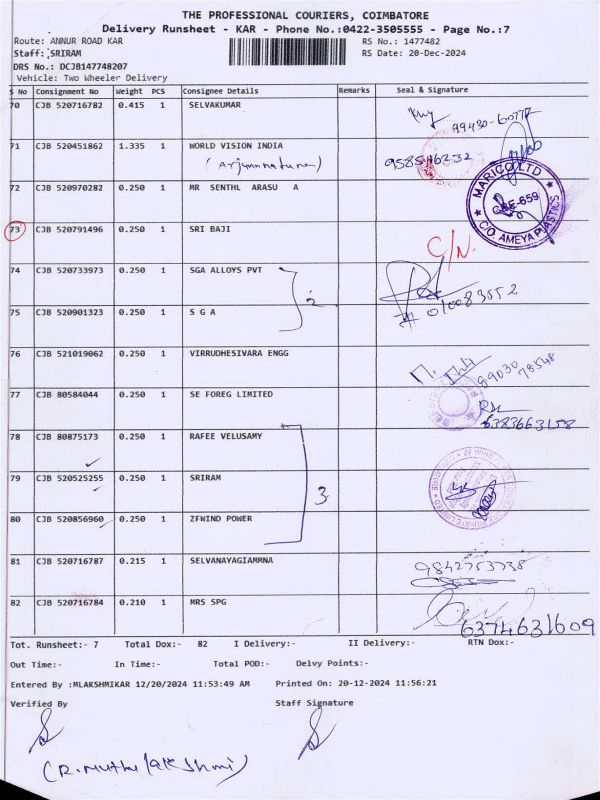 THE PROFESSIONAL COURIERS, COIMBATORE
Delivery Runsheet - KAR - Phone No.:0422-3505555 - Page No.:7
Route: ANNUR ROAD KAR RS No.: 1477482
Staff: SRIRAM RS Date: 20-Dec-2024
DRS No.: DCJB147748207
Vehicle: Two Wheeler Delivery
S No Consignment No Weight PCS Consignee Details Remarks Seal & Signature
70 CJB 520716782 0.415 1 SELVAKUMAR
99430-60777
71 CJB 520451862 1.335 1 WORLD VISION INDIA
9585416232
72 CJB 520970282 0.250 1 MR SENTHL ARASU A
MARICO LTD
CBE-659
C/O. AMEYA PLASTICS
73 CJB 520791496 0.250 1 SRI BAJI
C/N.
74 CJB 520733973 0.250 1 SGA ALLOYS PVT
2
75 CJB 520901323 0.250 1 S G A
76 CJB 521019062 0.250 1 VIRRUDHESIVARA ENGG
99030 78548
77 CJB 80584044 0.250 1 SE FOREG LIMITED
6383663158
78 CJB 80875173 0.250 1 RAFEE VELUSAMY
79 CJB 520525255 0.250 1 SRIRAM
3
80 CJB 520856960 0.250 1 ZFWIND POWER
81 CJB 520716787 0.215 1 SELVANAYAGIAMMNA
9842753738
82 CJB 520716784 0.210 1 MRS SPG
6374631609
Tot. Runsheet:- 7 Total Dox:- 82 I Delivery:- II Delivery:- RTN Dox:-
Out Time:- In Time:- Total POD:- Delvy Points:-
Entered By :MLAKSHMIKAR 12/20/2024 11:53:49 AM Printed On: 20-12-2024 11:56:21
Verified By Staff Signature
(R. Muthulakshmi)